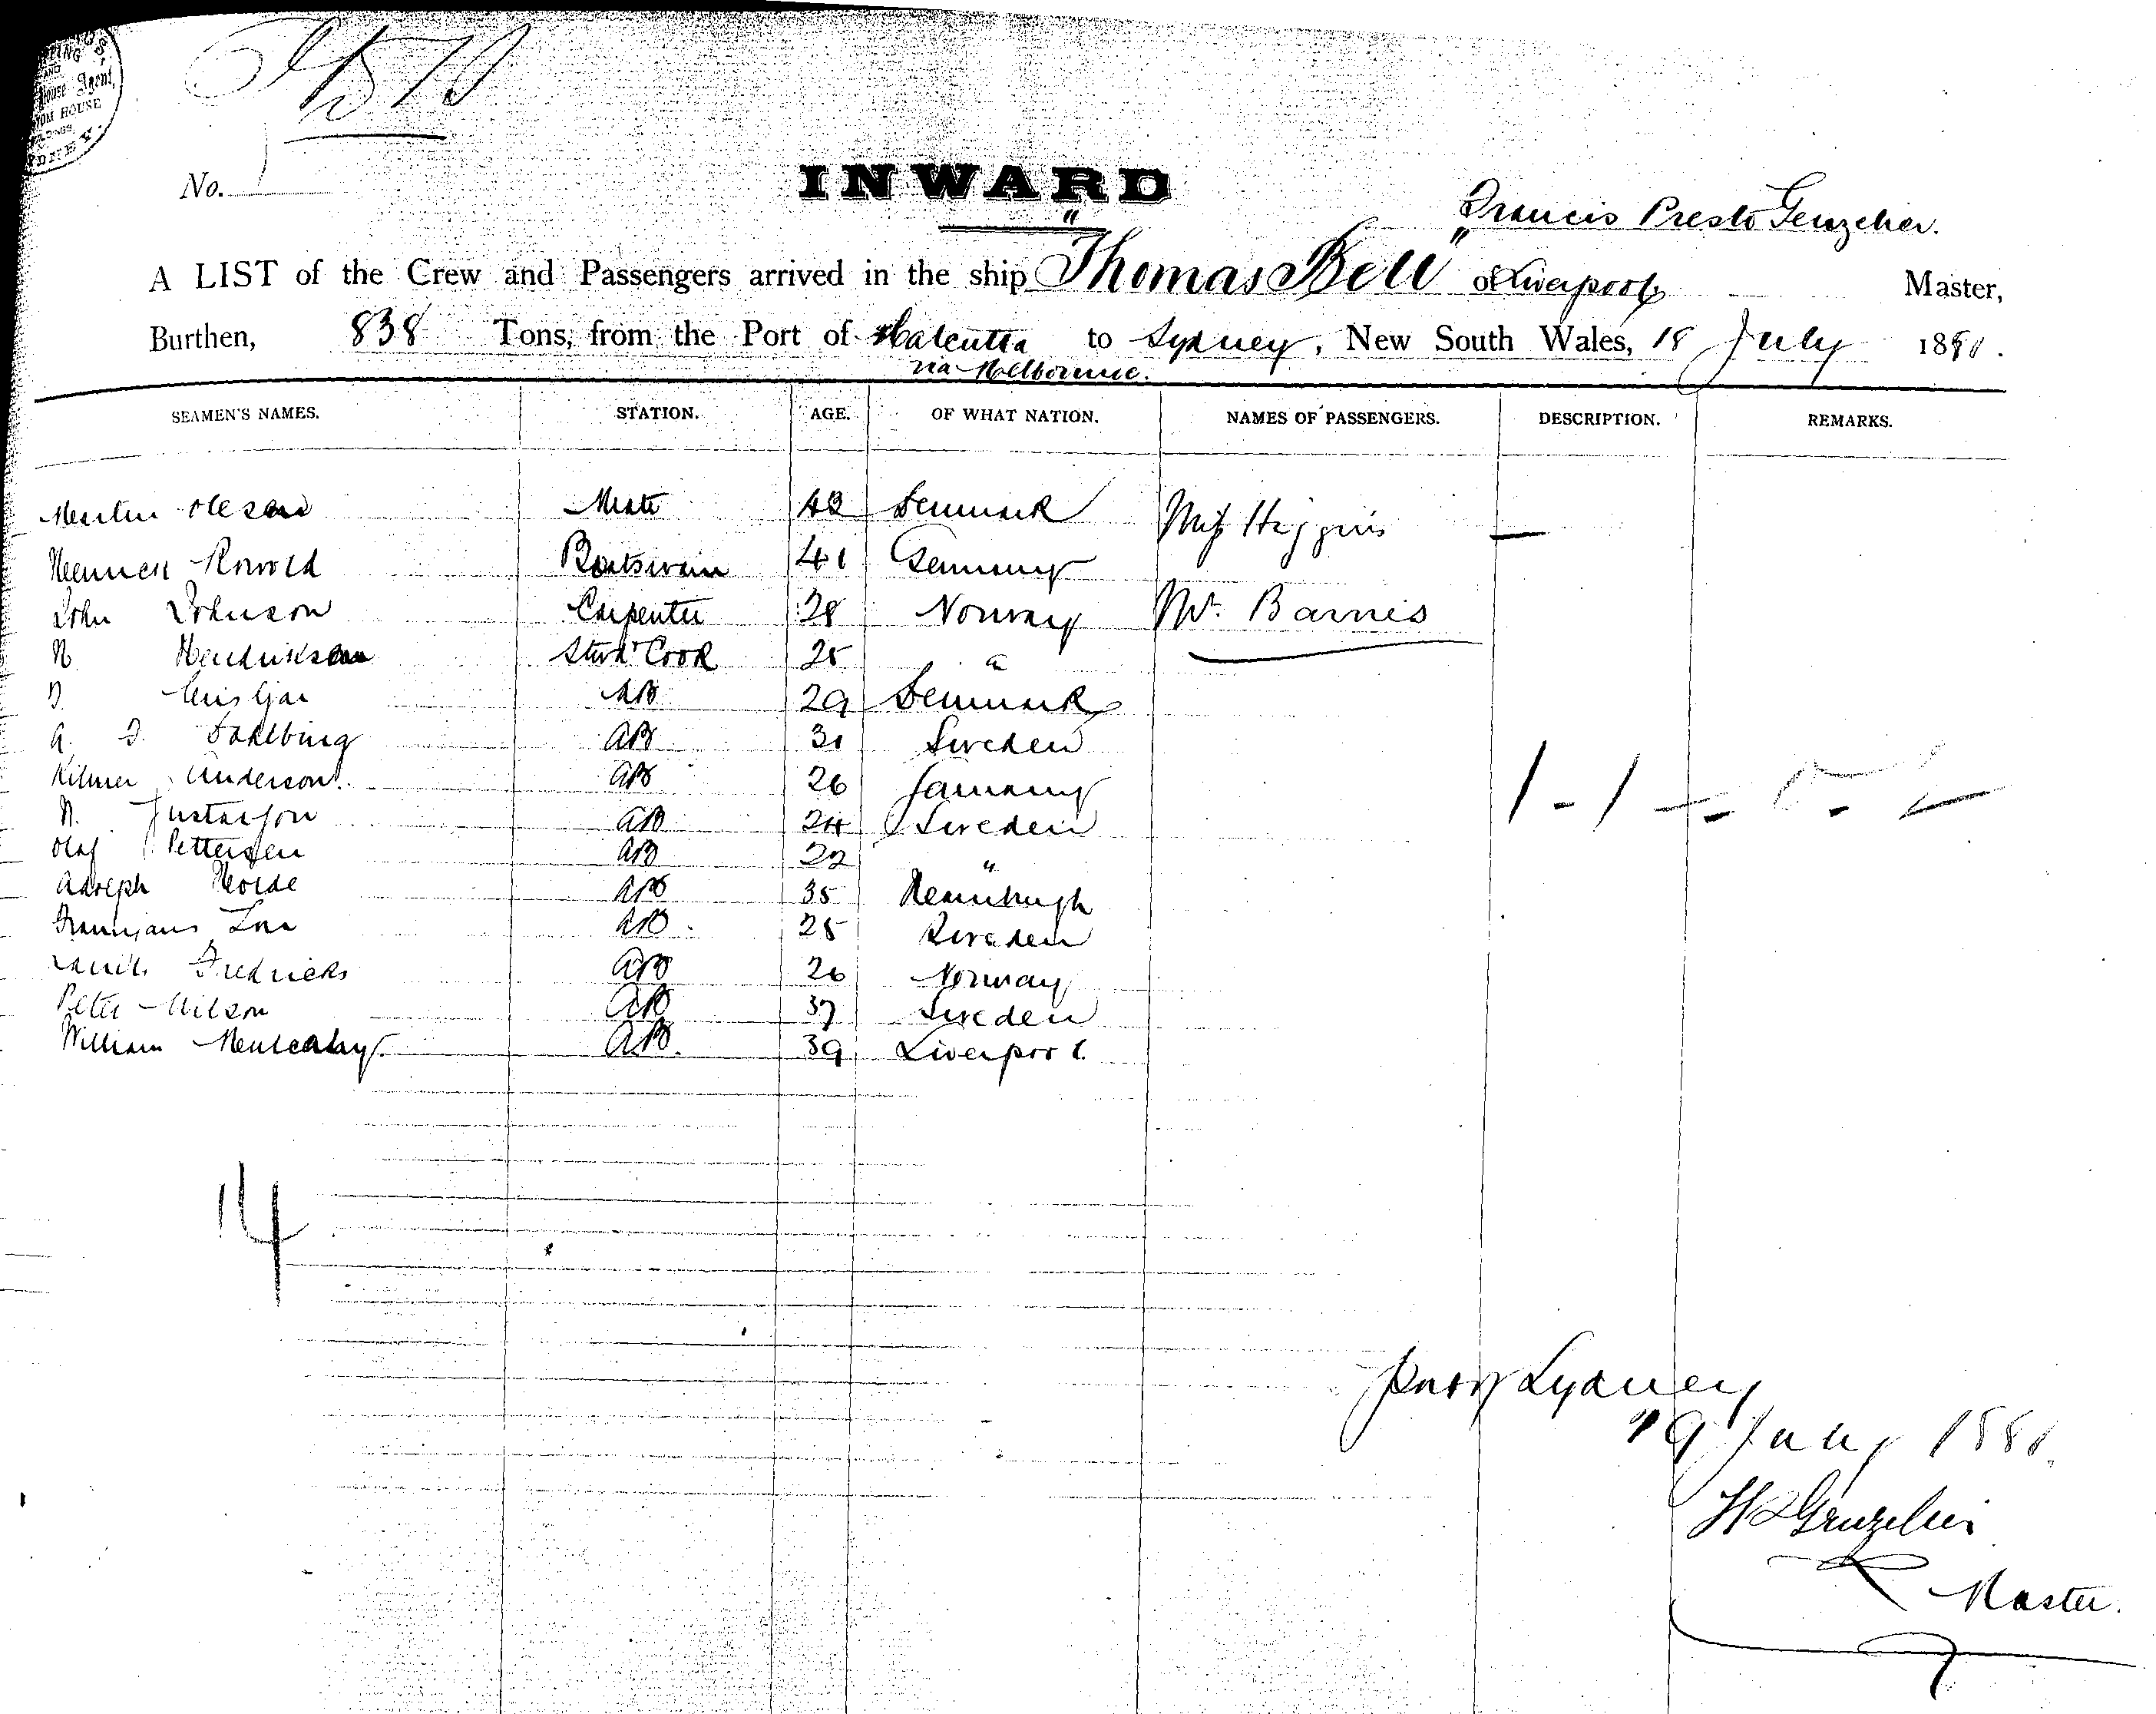 PING
AND
House Agent,
TOM HOUSE
No.
INWARD
Francis Presto Genzelier.
A LIST of the Crew and Passengers arrived in the ship "Thomas Bell" of Liverpool Master,
Burthen, 838 Tons, from the Port of Calcutta to Sydney, New South Wales, 18 July 1881.
via Melbourne.
SEAMEN'S NAMES. STATION. AGE. OF WHAT NATION. NAMES OF PASSENGERS. DESCRIPTION. REMARKS.
Martin Olesen Mate 42 Denmark Miss Higgins —
Boatswain 41 Germany
John Johnson Carpenter 28 Norway Mr. Barnes
N Hendriksen Stwd Cook 25 "
AB 29 Denmark
A. F. Dahlburg AB 31 Sweden
Hilmer Anderson. AB 26 Germany
N. Gustafson AB 24 Sweden
Olaf Pettersen AB 22 "
Adolph AB 35 Hamburgh
AB. 25 Sweden
Fredricks AB 26 Norway
Peter Nilson AB 37 Sweden
William AB. 39 Liverpool.
14
Port Sydney
19 July 1881.
Genzelier
Master.